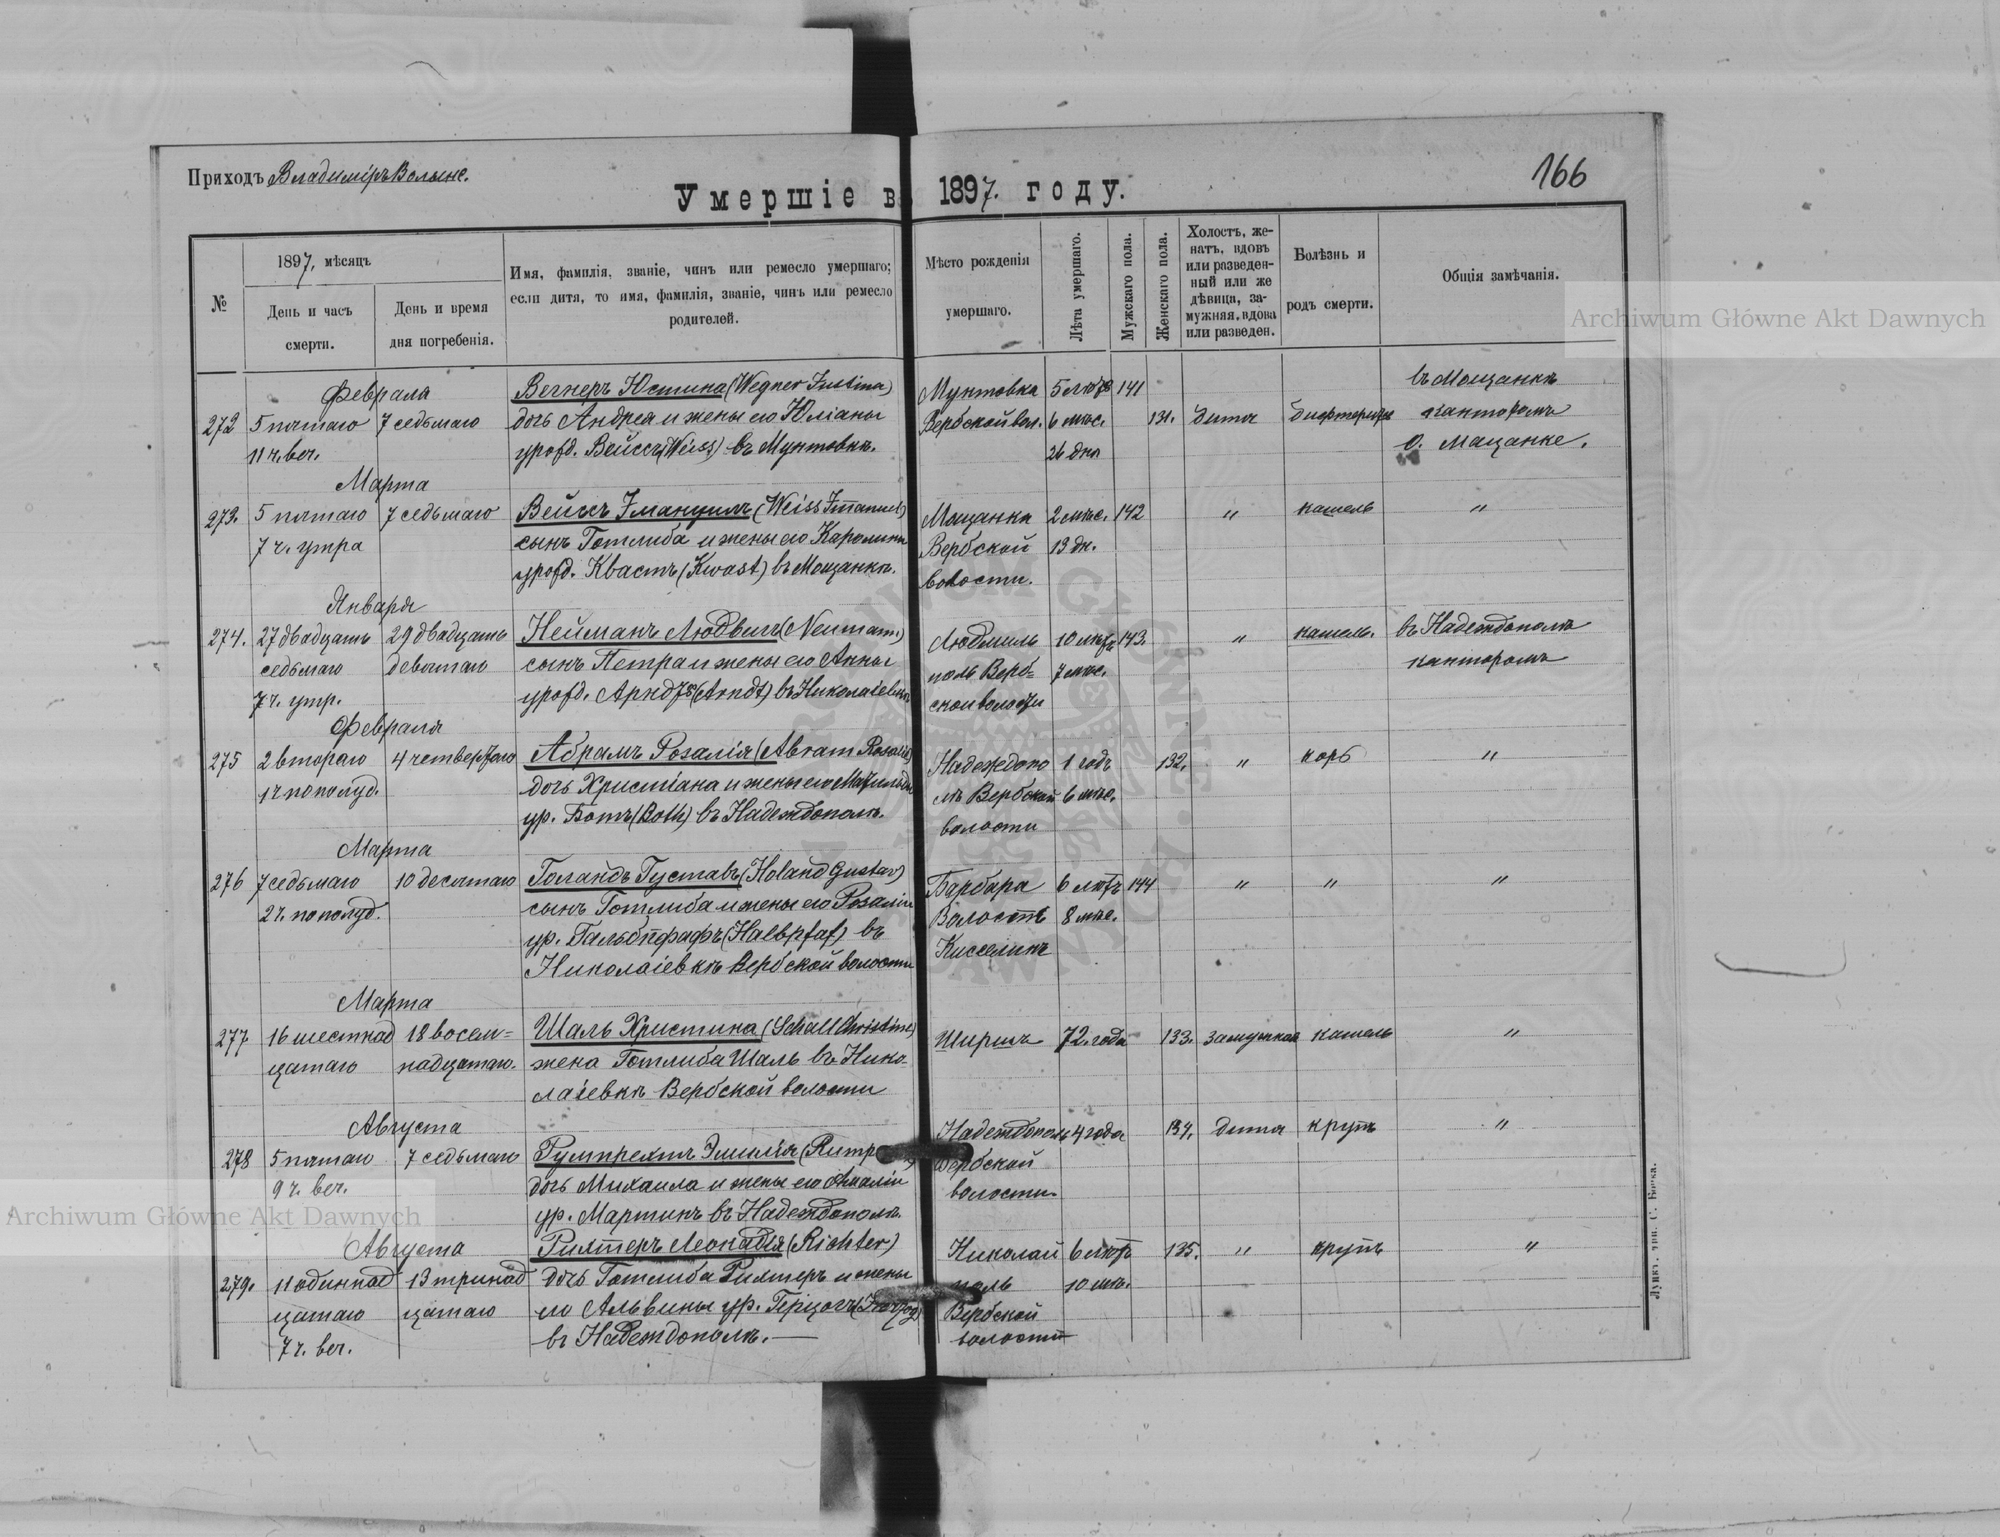 Приходъ Владимиръ Волынс.
Умершіе въ 1897. году.
166
№
1897, мѣсяцъ
День и часъ смерти.
День и время дня погребенія.
Имя, фамилія, званіе, чинъ или ремесло умершаго;
если дитя, то имя, фамилія, званіе, чинъ или ремесло
родителей.
Мѣсто рожденія
умершаго.
Лѣта умершаго.
Мужскаго пола.
Женскаго пола.
Холостъ, же-
натъ, вдовъ
или разведен-
ный или же
дѣвица, за-
мужняя, вдова
или разведен.
Болѣзнь и
родъ смерти.
Общія замѣчанія.
Февраля
272 5 пятаго 7 седьмаго
11 ч. веч.
Вегнеръ Юстина (Wegner Justina)
дочь Андрея и жены его Юліаны
урожд. Вейссъ (Weiss) въ Мунтовкѣ.
Мунтовка 5 лѣтъ 141
Вербской вол. 6 мѣс. 131. дитя дифтеритъ
26 дня
въ Мощанкѣ
канторомъ
о. Мащанке.
Марта
273. 5 пятаго 7 седьмаго
7 ч. утра
Вейссъ Эмануилъ (Weiss Emanuel)
сынъ Готлиба и жены его Каролины
урожд. Квастъ (Kwast) въ Мощанкѣ.
Мощанка 2 мѣс. 142 " кашель "
Вербской 13 дн.
волости.
Января
274. 27 двадцать 29 двадцать
седьмаго девятаго
7 ч. утр.
Нейманъ Людвигъ (Neumann)
сынъ Петра и жены его Анны
урожд. Арндтъ (Arndt) въ Николаіевкѣ
Людмиль 10 лѣтъ 143. " кашель. въ Надеждополѣ
поль Верб= 7 мѣс. канторомъ
ской волости
Февраля
275 2 втораго 4 четвертаго
1 ч. пополуд.
Абрамъ Розалія (Abram Rosalie)
дочь Христіана и жены его Матильды
ур. Ботъ (Both) въ Надеждополѣ.
Надеждопо 1 годъ 132. " корь "
лѣ Вербской 6 мѣс.
волости
Марта
276 7 седьмаго 10 десятаго
2 ч. пополуд.
Голандъ Густавъ (Holand Gustav)
сынъ Готлиба и жены его Розаліи
ур. Гальбпфафъ (Halbpfaf) въ
Николаіевкѣ Вербской волости
Барбара 6 лѣтъ 144 " " "
Волость 8 мѣс.
Киселинъ
Марта
277 16 шестнад 18 восем=
цатаго надцатаго.
Шаль Христина (Schall Christine)
жена Готлиба Шаль въ Нико-
лаіевкѣ Вербской волости
72. года 133. замужная кашель "
Августа
278 5 пятаго 7 седьмаго
9 ч. веч.
Румпрехтъ Эмилія
дочь Михаила и жены его Амаліи
ур. Мартинъ въ Надеждополѣ.
Надеждополь 4 года 134. дитя крупъ "
Вербской
волости.
Августа
279. 11 одиннад 13 тринад
цатаго цатаго
7 ч. веч.
Рихтеръ Леонадія (Richter)
дочь Готлиба Рихтеръ и жены
его Альвины ур. Герцогъ (Herzog)
въ Надеждополѣ. —
Николай 6 лѣтъ 135. " крупъ "
поль 10 мѣс.
Вербской
волости
Луцкъ, тип. С. Бокса.
Archiwum Główne Akt Dawnych
Archiwum Główne Akt Dawnych
ARCHIWUM GŁÓWNE AKT DAWNYCH